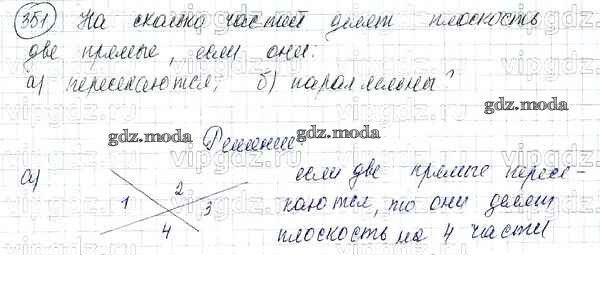 351 На сколько частей делят плоскость
две прямые, если они:
а) пересекаются; б) параллельны?
gdz.moda gdz.moda gdz.moda
Решение:
а) если две прямые пересе-
1 2 3 4
каются, то они делят
плоскость на 4 части
vipgdz.ru